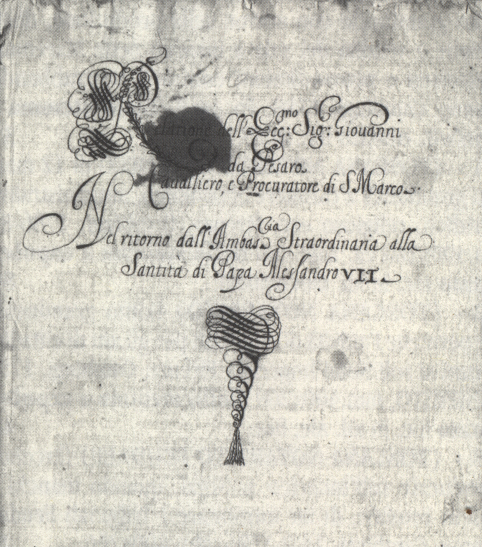 Relatione dell' Ecc:mo Sig.r Giovanni
da Pesaro
Cavalliero, e Procuratore di S Marco.
Nel ritorno dall' Ambas.cia Straordinaria alla
Santità di Papa Alessandro VII.